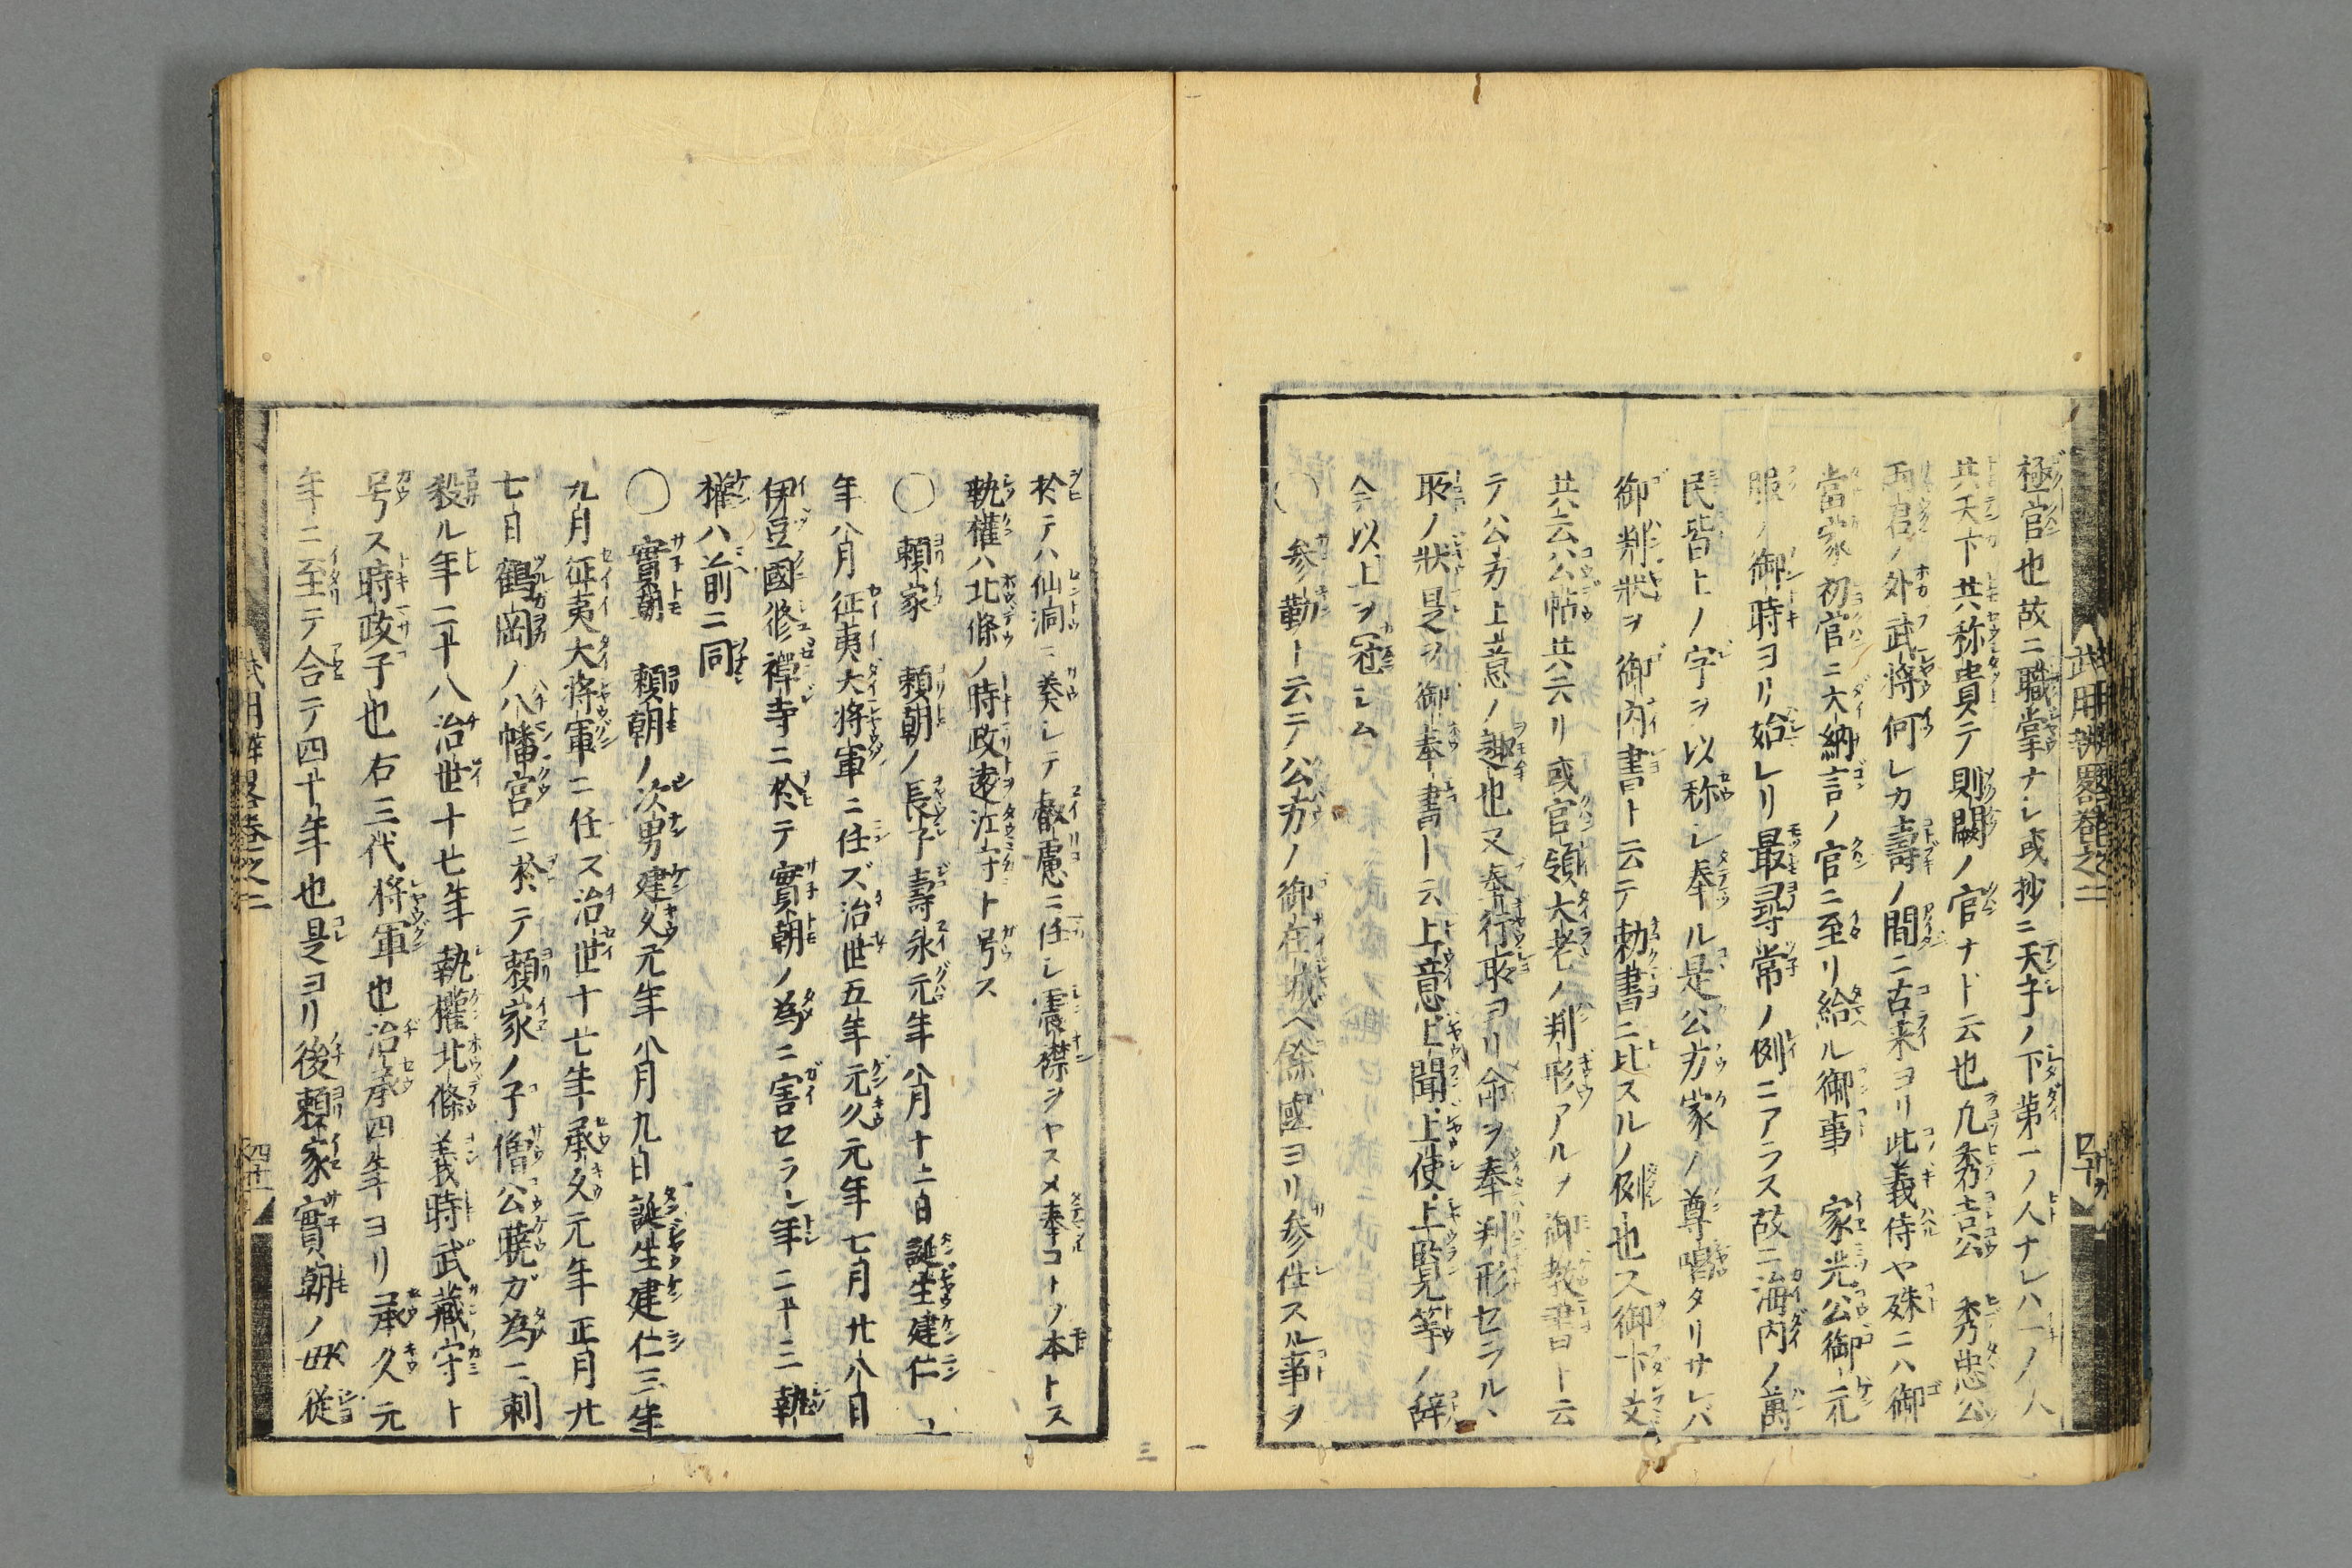 極官也故ニ職掌ナシ或抄ニ天子ノ下第一ノ人ナレハ一ノ人
共天下共称貴テ則闕ノ官ナト云也凢秀吉公 秀忠公
両君ノ外武将何レカ壽ノ間ニ古来ヨリ此義侍ヤ殊ニハ御
當家初官ニ大納言ノ官ニ至リ給ル御事 家光公御元
服ノ御時ヨリ始レリ最尋常ノ例ニアラス故ニ海内ノ萬
民皆上ノ字ヲ以称シ奉ル是公方家ノ尊唱タリサレバ
御判状ヲ御内書ト云テ勅書ニ比スルノ例也ス御下文
共云公帖共云リ或官領大老ノ判形アルヲ御教書ト云
テハ公方上意ノ趣也又奉行取ヨリ命ヲ奉判形セラル丶
取ノ状是ヲ御奉書ト云上意上聞上使上覧等ノ辞
令以上ヲ冠シム
〇参勤ト云テ公方ノ御在城ヘ余國ヨリ参仕スル事ヲ
武用辨畧巻之二
四十ヲ
於テハ仙洞ニ奏シテ叡慮ニ任シ震襟ヲヤスメ奉コトヲ本トス
執權ハ北條ノ時政遠江守ト号ス
〇頼家 頼朝ノ長子壽永元年八月十二日誕生建仁二
年八月征夷大将軍ニ任ズ治世五年元久元年七月廿八日
伊豆國修禅寺ニ於テ實朝ノ為ニ害セラレ年二十三執
權ハ前ニ同
〇實朝 頼朝ノ次男建久元年八月九日誕生建仁三年
九月征夷大将軍ニ任ス治世十七年承久元年正月廿
七日鶴岡ノ八幡宮ニ於テ頼家ノ子僧公暁ガ為ニ刺
殺ル年二十八治世十七年執權北條義時武藏守ト
号ス時政子也右三代将軍也治承四年ヨリ承久元
年ニ至テ合テ四十年也是ヨリ後頼家實朝ノ
武用辨畧巻之二
四十一